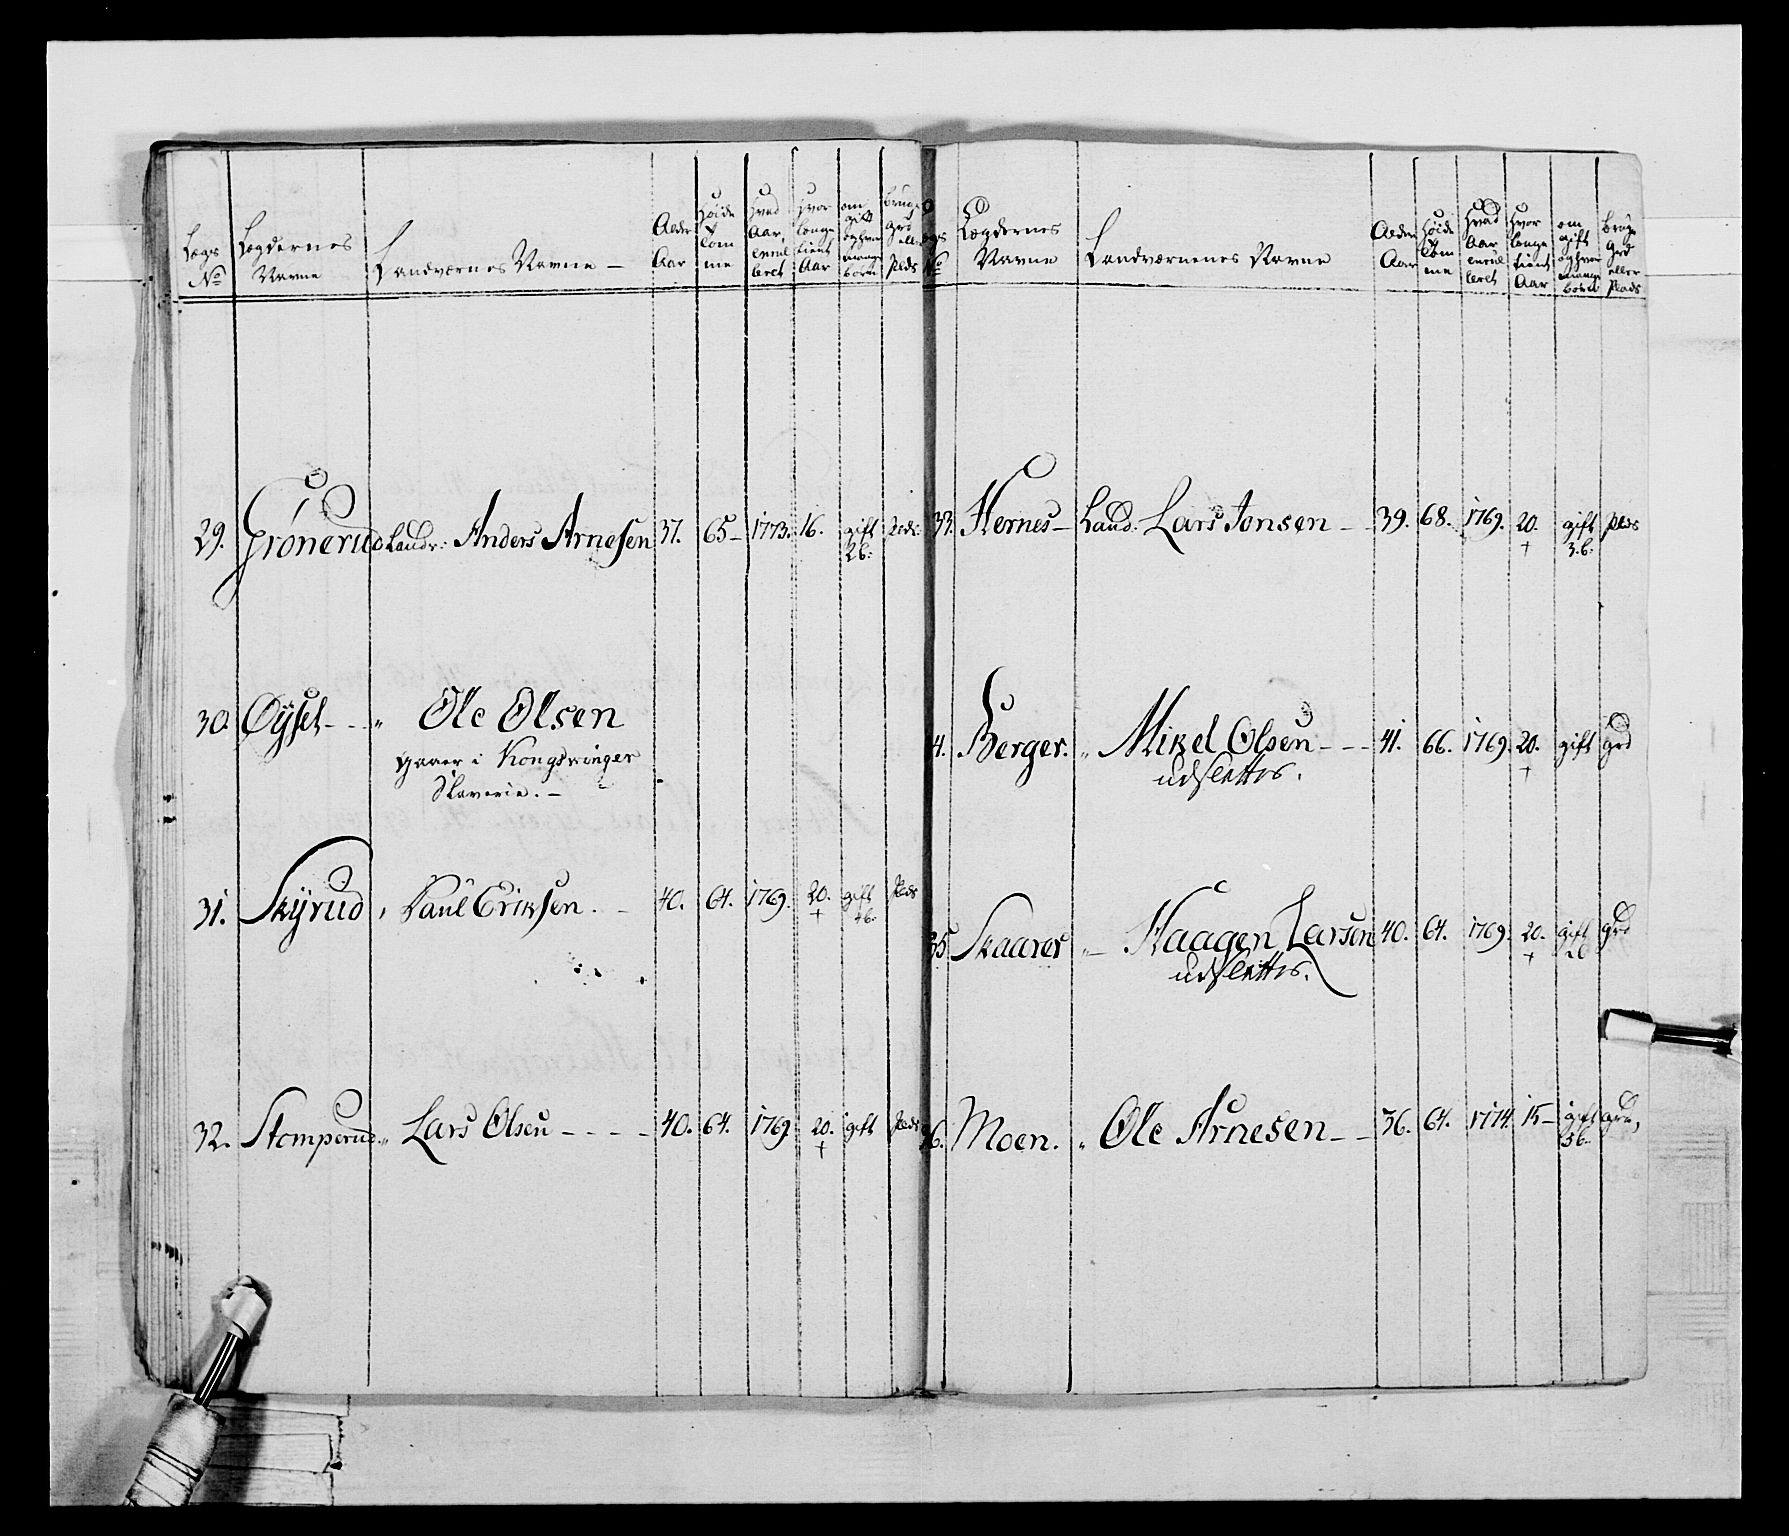 Lægs No | Lægdernes Navne | Landværnes Navne — | Alder Aar | Høide Tom me | Hvad Aar enrul leret | Hvor længe tient Aar | om gift og hvor mange børn | Bruger grd ell. Plads
29. Grønerud Landv: Anders Arnesen 37. 65 — 1773. 16. gift Plds:
2 b:
30. Øyset — — „ Ole Olsen
gaaer i Kongsvinger
Slaverie. —
31. Skyrud „ Paul Eriksen. — 40. 64. 1769. 20. gift Plads
+ 4 b:
32. Stomperud „ Lars Olsen — — — — 40. 64. 1769. 20. gift Plads
+
Lægs No | Lægdernes Navne | Landværnenes Navne | Alder Aar | Høide Tom me | Hvad Aar enrul leret | Hvor længe tient Aar | om gift og hvor mange børn | Bruge Grd eller Plads
33. Hernes — Land: Lars Jonsen — — 39. 68. 1769. 20. gift Plds
+ 3. b:
4. Berger. „ Mikel Olsen — — — 41. 66. 1769. 20. gift grd
udslettes. +
35. Skaarer „ — Haagen Larsen 40. 64. 1769. 20. gift grd
udslettes. + 2 b
36. Moen. „ Ole Arnesen — — 36. 64. 1774. 15 — gift grd,
3 b.